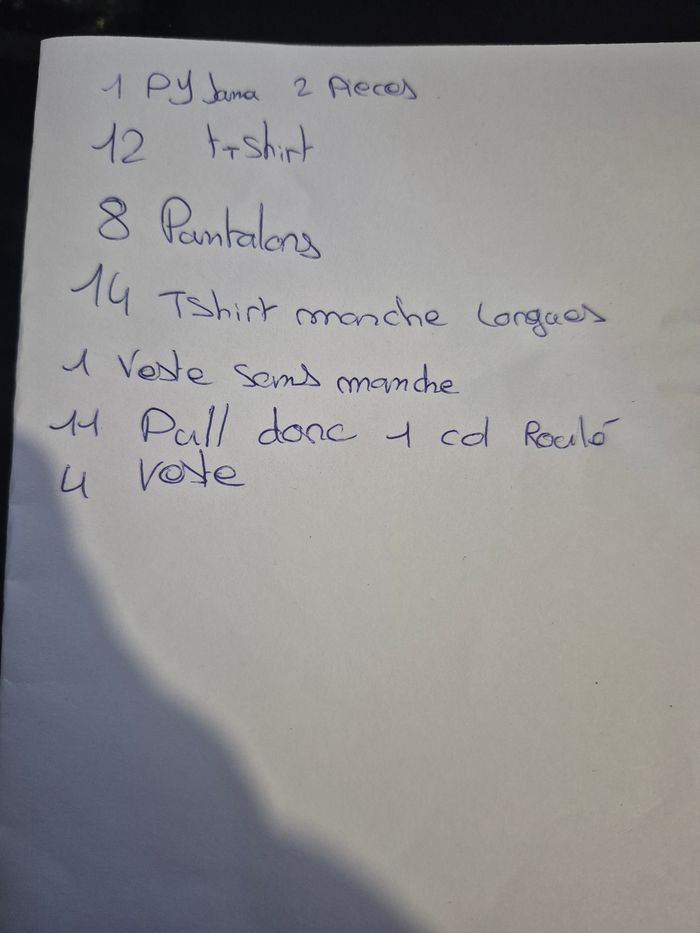 1 PYJama 2 Pieces
12 t-Shirt
8 Pantalons
14 TShirt manche Longues
1 Veste sans manche
11 Pull donc 1 col Roulé
4 Veste